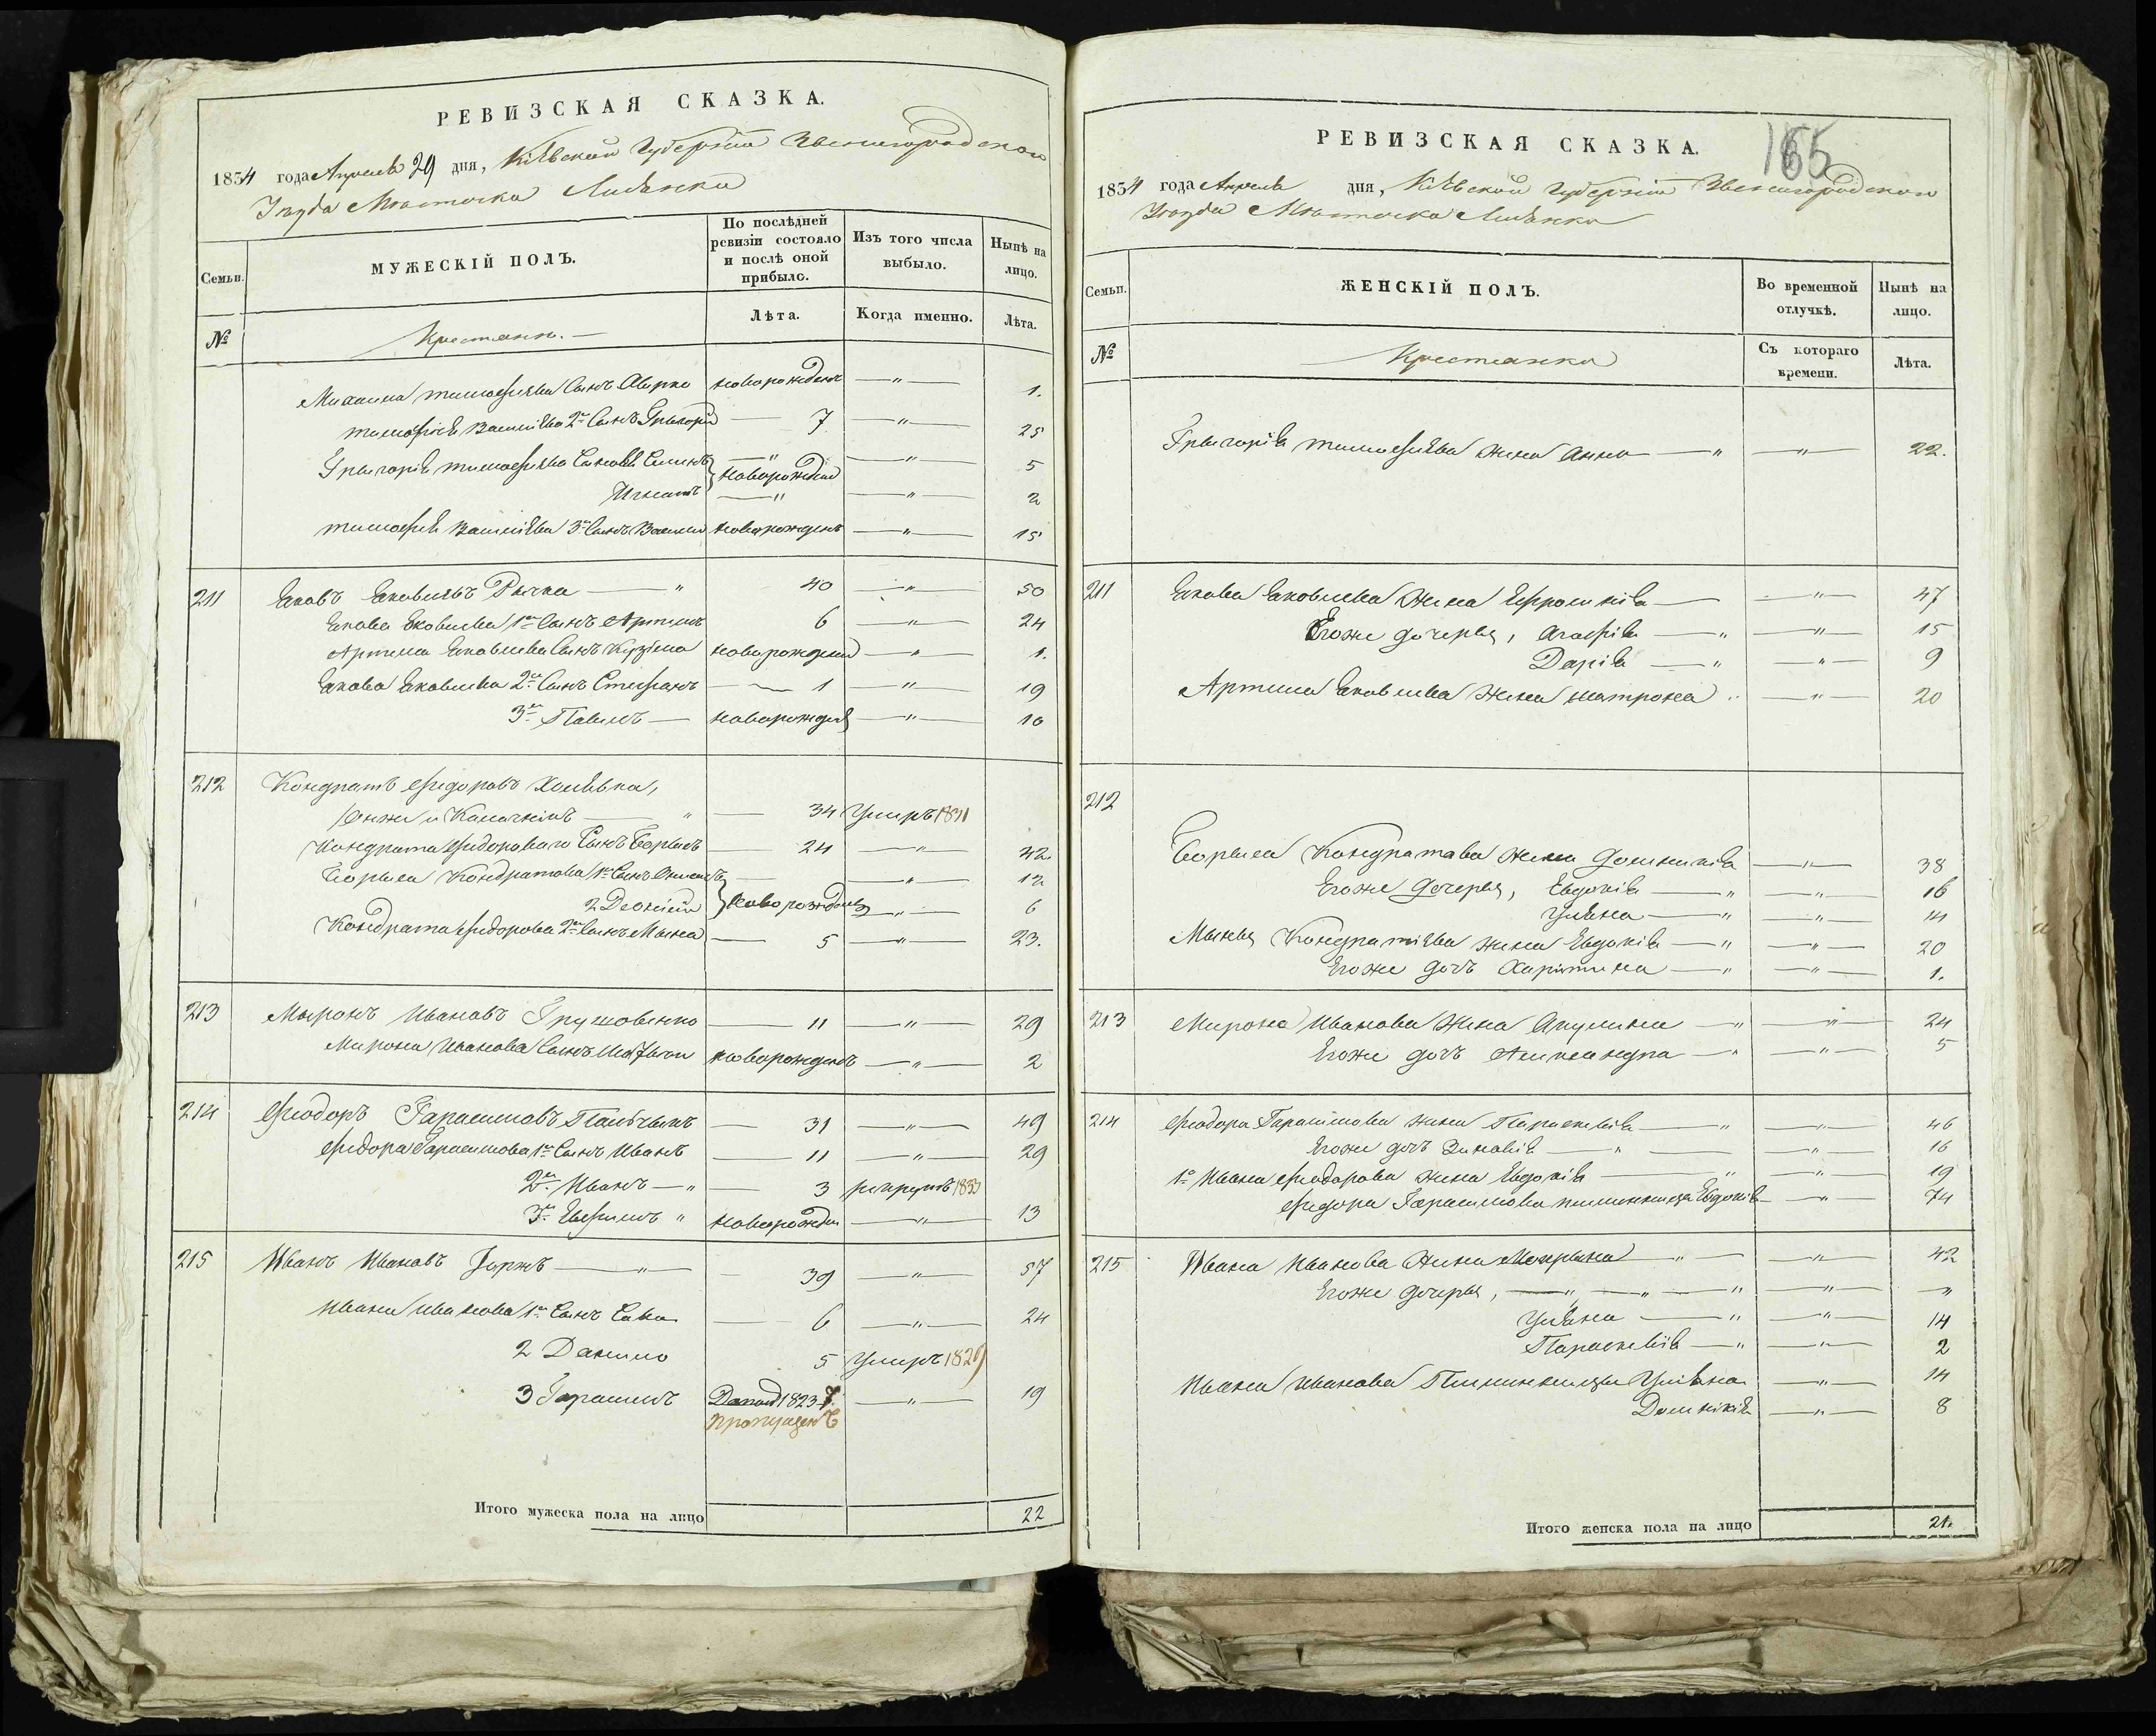 РЕВИЗСКАЯ СКАЗКА.
1834 года Апреля 29 дня, Кіевской Губерніи Звенигородскаго
Уезда Мѣстечка Лисянки
Семьи. МУЖЕСКІЙ ПОЛЪ. По послѣдней ревизіи состояло и послѣ оной прибыло. Изъ того числа выбыло. Нынѣ на лицо.
№ Крестьяне. Лѣта. Когда именно. Лѣта.
Михаила Тимофіева Сынъ новорожденъ — " — 1.
Тимофіея Василіева 2й Сынъ Грыгорій — 7 — " — 25
Грыгорія Тимофіева Сыновья Семенъ — " — новорожден — " — 5
Игнатъ — " — " — 2
Тимофія Василіева 3й Сынъ Василь новорожденъ — " — 15
211 Яковъ Яковлевъ Рычка — " 40 — " — 50
Якова Яковлева 1й Сынъ Артемъ 6 — " — 24
Артема Яковлева Сынъ Кузіма новорожден — " — 1.
Якова Яковлева 2й Сынъ Стефанъ — 1 — " — 19
3й Павелъ — новорожден — " — 10
212 Кондратъ Федоровъ
онже и — " — 34 Умеръ 1831
Кондрата Федорова Сынъ Борысъ — 24 — " — 42.
Борыса Кондратова 1й Сынъ — " — 12
2 новорожден — " — 6
Кондрата Федорова 2й Сынъ Мына — 5 — " — 23.
213 Миронъ Ивановъ Грушовенко — 11 — " — 29
Мирона Иванова Сынъ новорожденъ — " — 2
214 Феодоръ Гарасимовъ — 31 — " — 49
Федора Гарасимова 1й Сынъ Иванъ — 11 — " — 29
2й Иванъ — " — 3 рекрутъ 1833
3й Ефимъ " новорожден — " — 13
215 Иванъ Ивановъ — " — 39 — " — 57
Ивана Иванова 1й Сынъ Сава — 6 — " — 24
2 Данило 5 Умеръ 1829
3 Гарасимъ 1823 7. — " — 19
пропущенъ
Итого мужеска пола на лицо 22
165
РЕВИЗСКАЯ СКАЗКА.
1834 года Апреля дня, Кіевской Губерніи Звенигородскаго
Уезда Мѣстечка Лисянки
Семьи. ЖЕНСКІЙ ПОЛЪ. Во временной отлучкѣ. Нынѣ на лицо.
№ Крестьянки Съ котораго времени. Лѣта.
Грыгорія Тимофіева жена Анна — " — " — 22.
211 Якова Яковлева жена Ефросинія — " — 47
Егоже дочерья, Агафія — " — " — 15
Дарія — " — " — 9
Артема Яковлева жена Матрона " — " — 20
212
Борыса Кондратова жена Домникія — " — 38
Егоже дочерья, Евдокія — " — " — 16
Уліяна — " — " — 14
Мыны Кондратіева жена Евдокія — " — " — 20
Егоже дочъ Харитина — " — " — 1.
213 Мирона Иванова жена Акулина — " — " — 24
Егоже дочъ Александра — " — " — 5
214 Феодора Гарасимова жена Параскевія — " — " — 46
Егоже дочъ Зиновія — " — " — 16
1о Ивана Феодорова жена Евдокія — " — " — 19
Федора Гарасимова Евдокія — " — 74
215 Ивана Иванова жена Мокрына — " — " — 42
Егоже дочерья, — " — " — " — " — "
Уліяна — " — " — 14
Параскевія — " — " — 2
Ивана Иванова Племянницы Уліяна — " — 14
Домникія — " — 8
Итого женска пола на лицо 21.